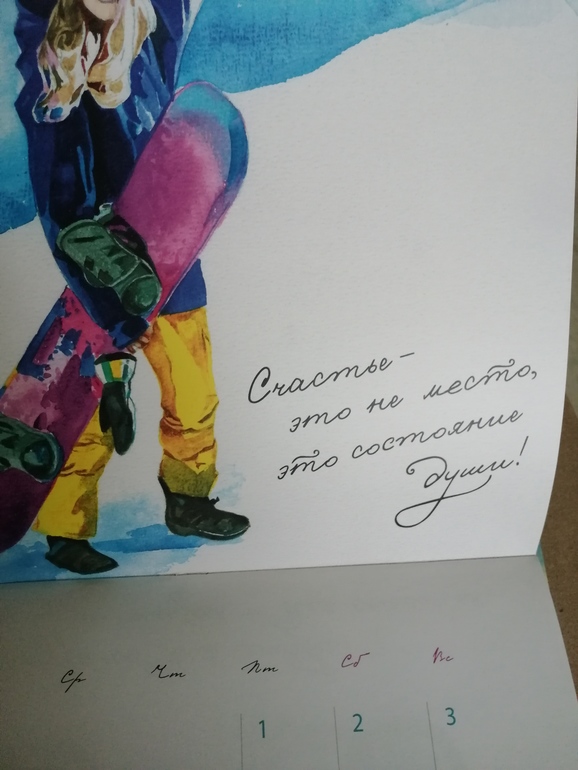 Счастье –
это не место,
это состояние
души!
Ср Чт Пт Сб Вс
1 2 3